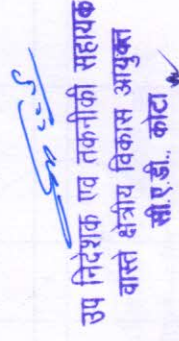 उप निदेशक एव तकनीकी सहायक
वास्ते क्षेत्रीय विकास आयुक्त
सी.ए.डी.. कोटा